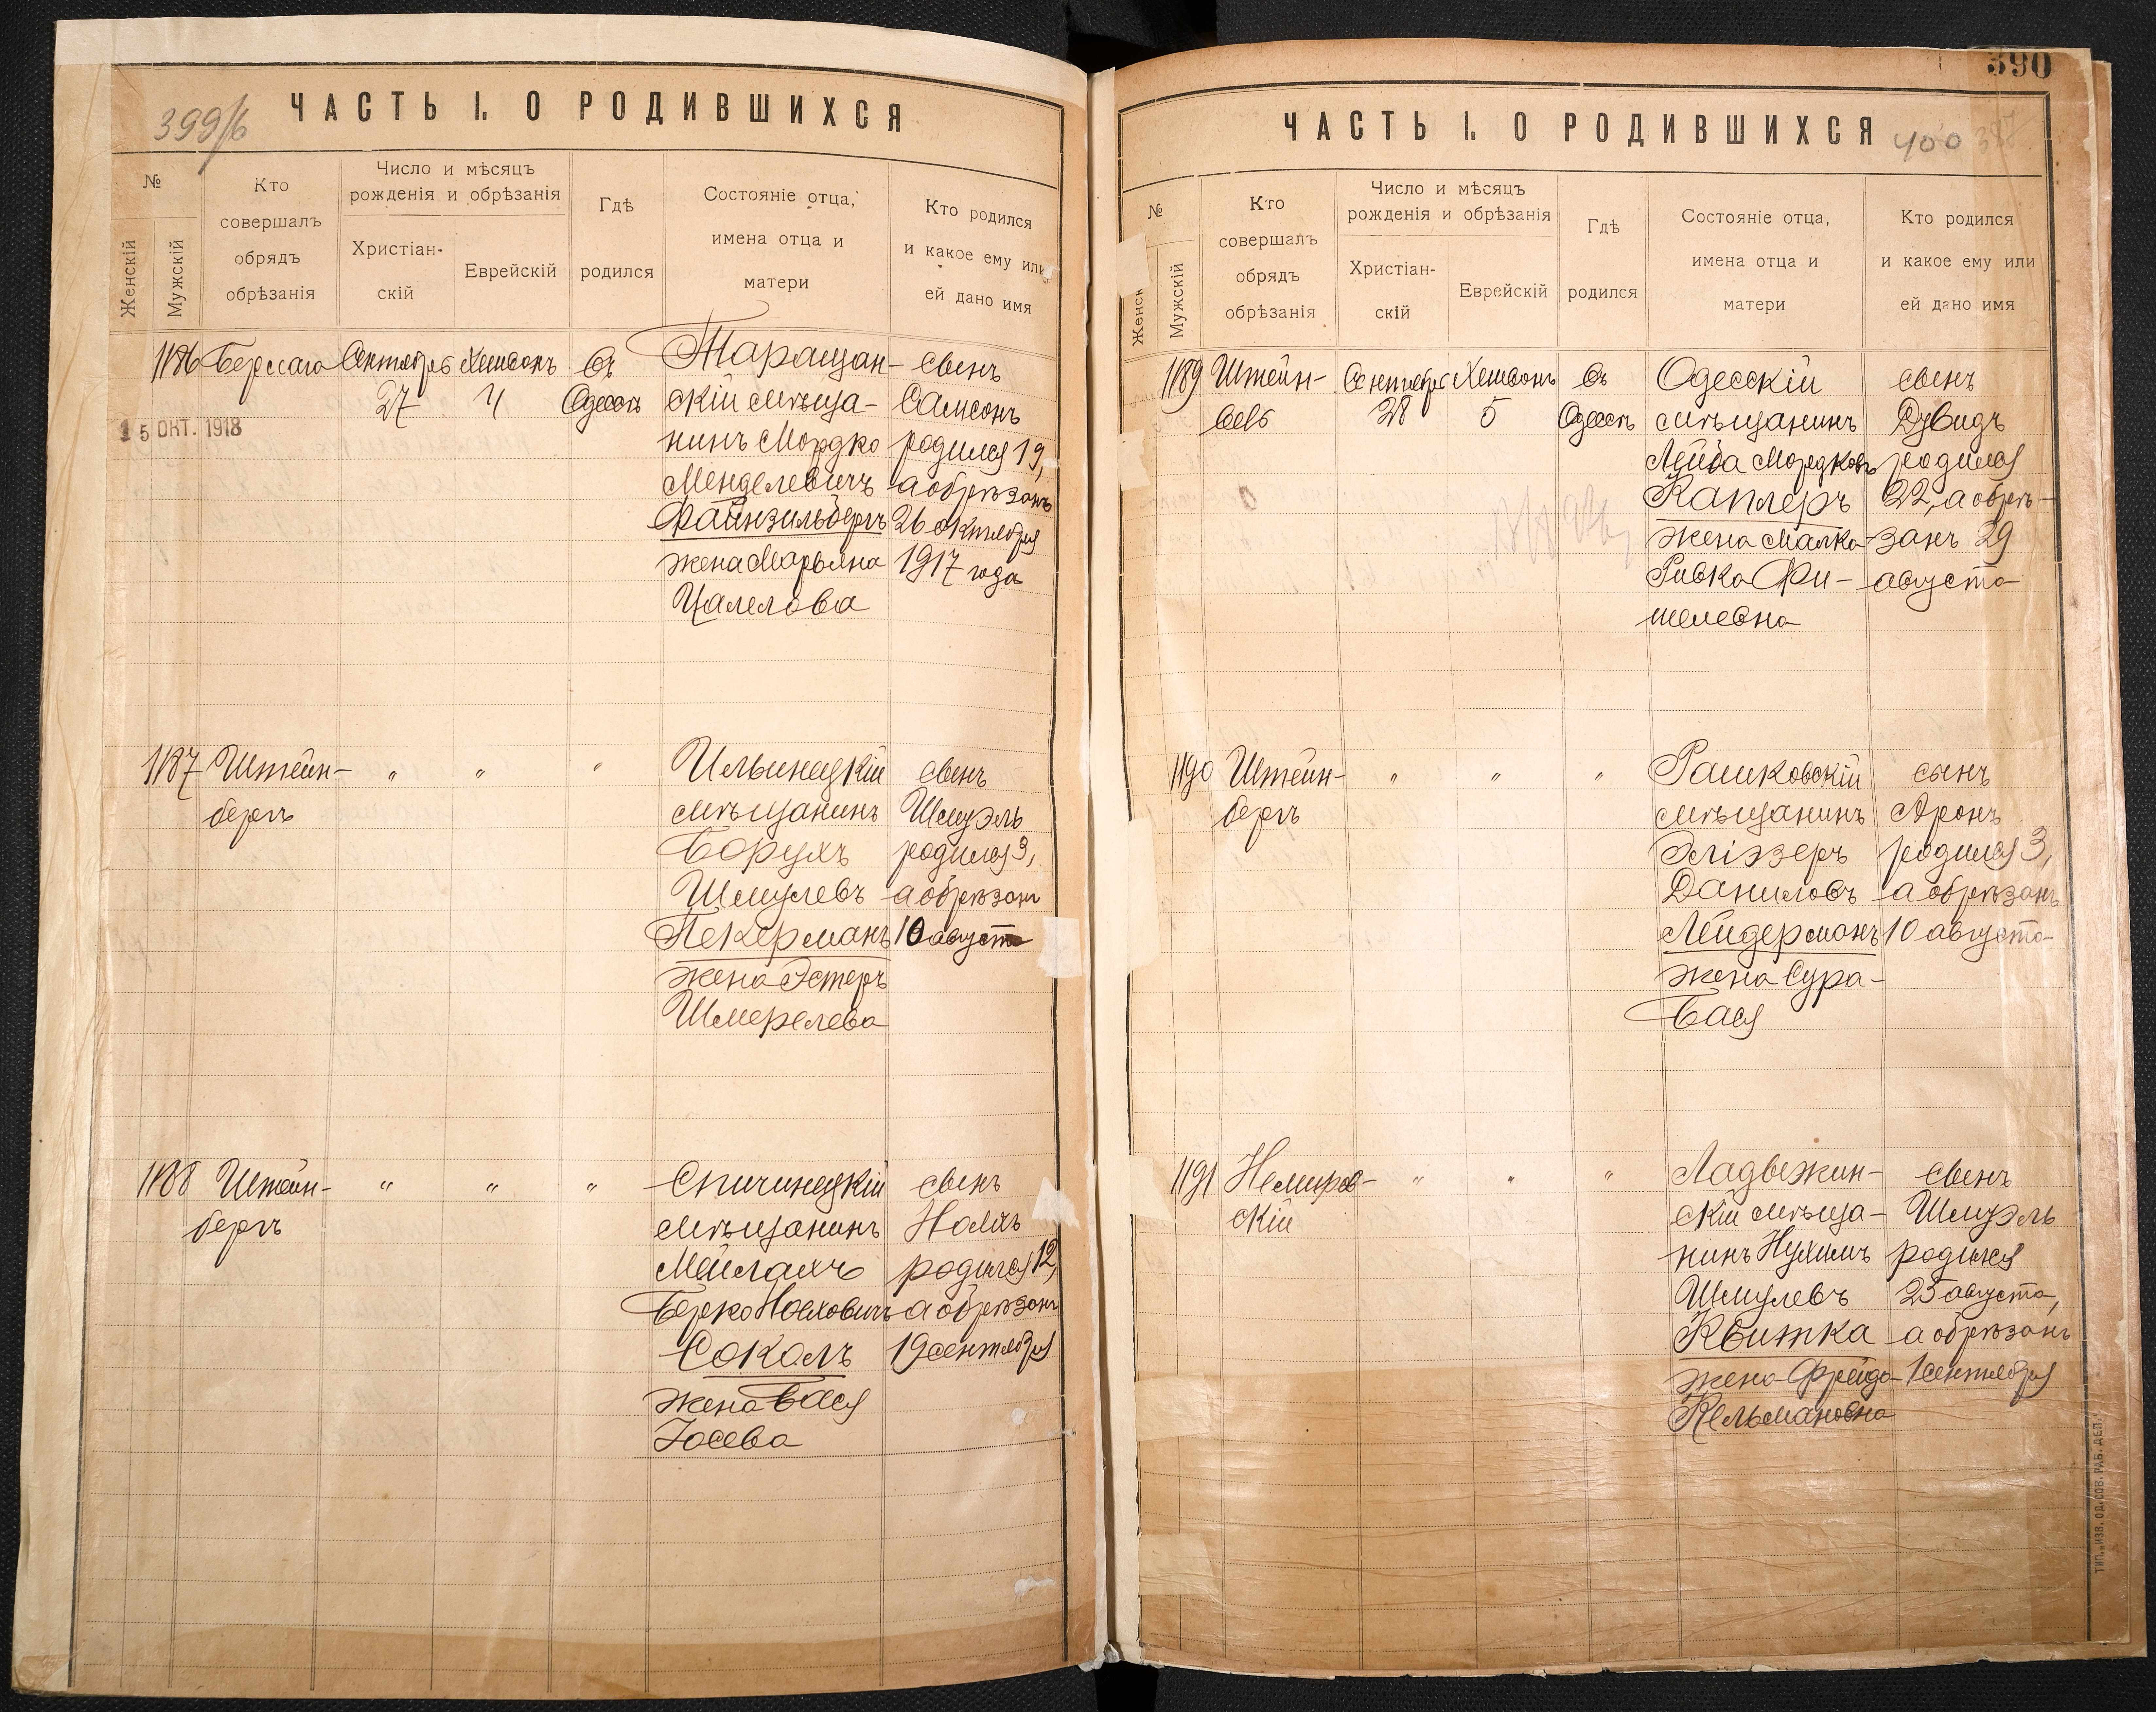 399/б
ЧАСТЬ I. О РОДИВШИХСЯ
№
Женскій
Мужскій
Кто
совершалъ
обрядъ
обрѣзанія
Число и мѣсяцъ
рожденія и обрѣзанія
Христіан-
скій
Еврейскій
Гдѣ
родился
Состояніе отца,
имена отца и
матери
Кто родился
и какое ему или
ей дано имя
1186
Сентябрь
27
Хешвонъ
4
Въ
Одессѣ
Таращан-
скій мѣща-
нинъ Мордко
Менделевичъ
Файнзильбергъ
жена Марьяна
Цалелова
сынъ
Самсонъ
родился 19,
а обрѣзанъ
26 октября
1917 года
15 ОКТ. 1918
1187
Штейн-
бергъ
„
„
„
Ильинецкій
мѣщанинъ
Борухъ
Шмулевъ
Пекерманъ
жена Эстеръ
Шмерелева
сынъ
Шмуэль
родился 3,
а обрѣзанъ
10 августа
1188
Штейн-
бергъ
„
„
„
Спичинецкій
мѣщанинъ
Мейлахъ
Берко Ноеховичъ
Соколъ
жена Бася
Іосева
сынъ
родился 12,
а обрѣзанъ
19 сентября
390
ЧАСТЬ I. О РОДИВШИХСЯ
400
№
Женск
Мужскій
Кто
совершалъ
обрядъ
обрѣзанія
Число и мѣсяцъ
рожденія и обрѣзанія
Христіан-
скій
Еврейскій
Гдѣ
родился
Состояніе отца,
имена отца и
матери
Кто родился
и какое ему или
ей дано имя
1189
Штейн-
Сентябрь
28
Хешвонъ
5
Въ
Одессѣ
Одесскій
мѣщанинъ
Лейба Мордковъ
Каплеръ
жена Малка-
Ривка Фи-
шелевна
сынъ
Дувидъ
родился
22, а обрѣ-
занъ 29
августа
1190
Штейн-
бергъ
„
„
„
Рашковскій
мѣщанинъ
Эліэзеръ
Даниловъ
Лейдерманъ
жена Сура-
Бася
сынъ
Аронъ
родился 3,
а обрѣзанъ
10 августа
1191
Немиров-
скій
„
„
„
Ладыжин-
скій мѣща-
нинъ Нухимъ
Шмулевъ
Квитка
жена Фрейда
Кельмановна
сынъ
Шмуэль
родился
25 августа,
а обрѣзанъ
1 сентября
ТИП. „ИЗВ. ОД. СОВ. РАБ. ДЕП."